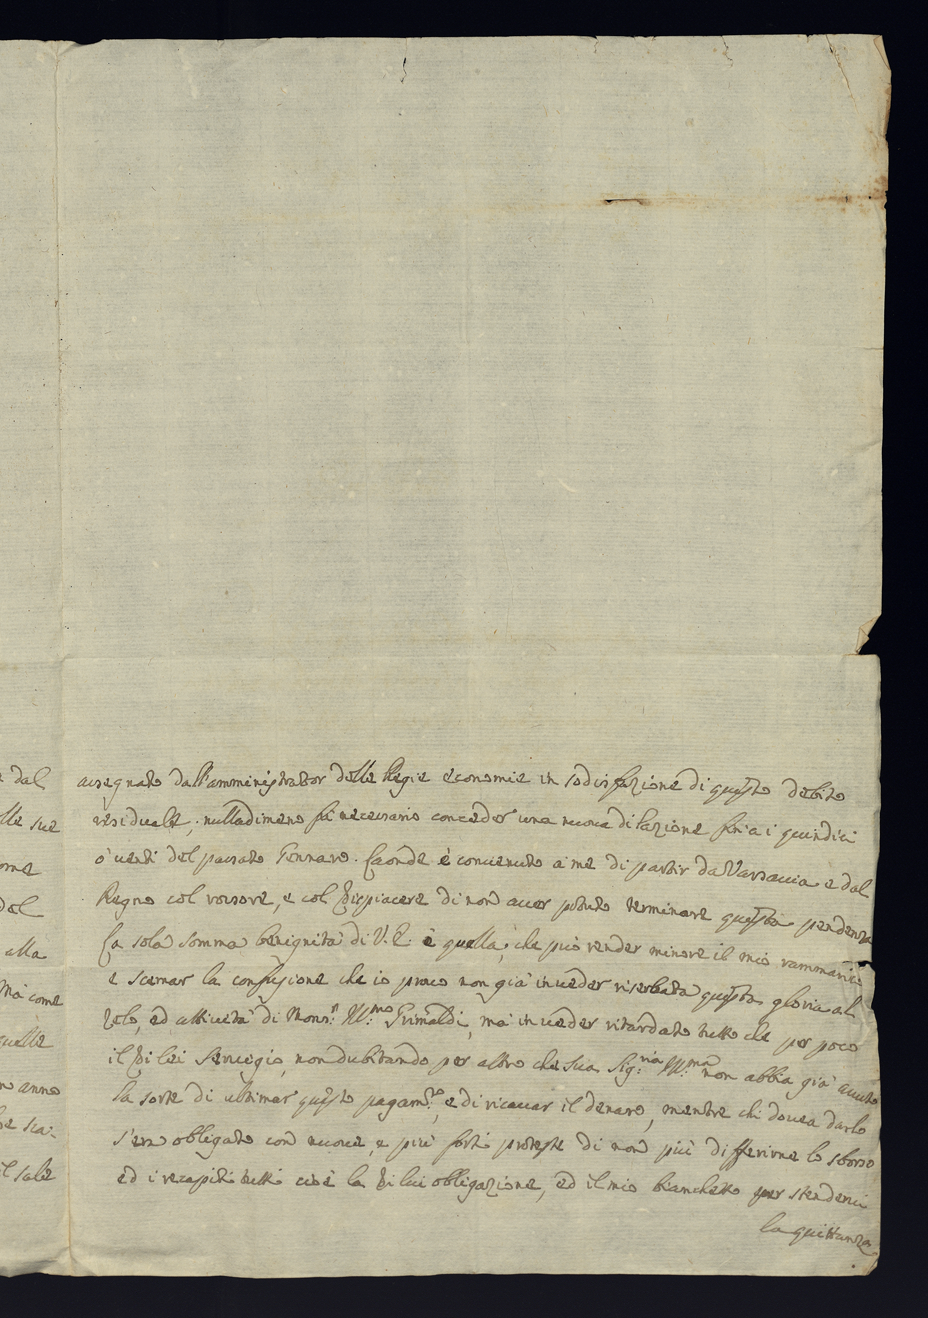 dal
lle sue
ome
dol
alla
Mà come
quelle
anno
il sale
assegnato dall'amministrator delle Regie economie in sodisfazione di questo debito
residuale; nulladimeno fù necessario conceder una nuova dilazione fin'a i quindici
ò venti del passato Gennaro. Laonde è convenuto a me di partir da Varsavia e dal
Regno col rossore, e col dispiacere di non aver potuto terminare questa pendenza
La sola somma benignità di V. E. è quella, che può render minore il mio rammarico
e scemar la confusione che io provo non già in veder riserbata questa gloria al
zelo, ed attività di Mons.r Ill.mo Grimaldi, mà in veder ritardato tutto che per poco
il di lei servigio, non dubitando per altro che sua Sig.ria Ill.ma non abbia già avuto
la sorte di ultimar questo pagam.to, e di ricavar il denaro, mentre chi dovea darlo
s'era obligato con nuove, e più forti proteste di non più differirne lo sborso
ed i recapiti tutti cioè la di lui obligazione, ed il mio bianchetto per stenderci
la quittanza